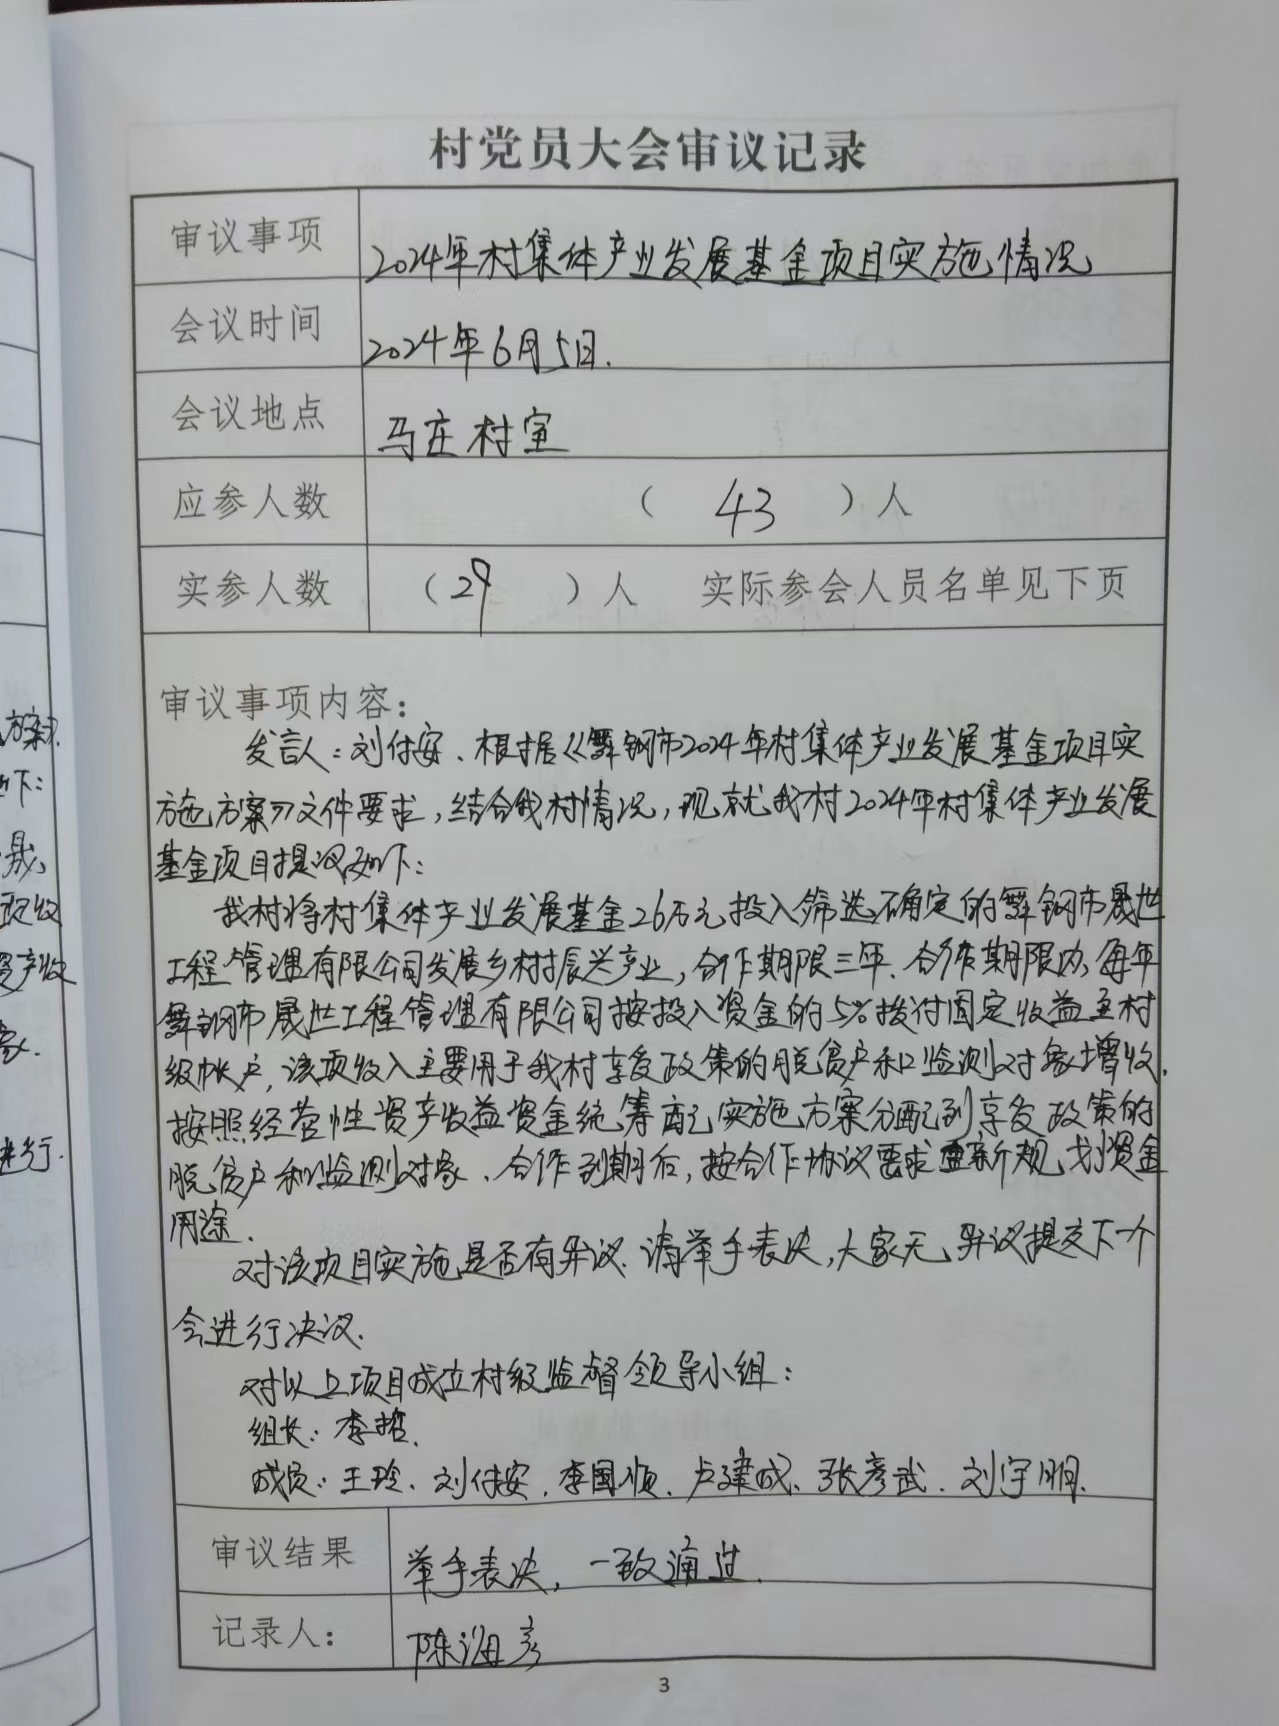 村党员大会审议记录
审议事项 2024年村集体产业发展基金项目实施情况
会议时间 2024年6月5日.
会议地点 马庄村室
应参人数 ( 43 )人
实参人数 (29 )人 实际参会人员名单见下页
审议事项内容:
发言人:刘付安、根据《舞钢市2024年村集体产业发展基金项目实
施方案》文件要求,结合我村情况,现就我村2024年村集体产业发展
基金项目提议如下:
我村将村集体产业发展基金26万元投入筛选确定的舞钢市晟世
工程管理有限公司发展乡村振兴产业,合作期限三年.合作期限内,每年
舞钢市晟世工程管理有限公司按投入资金的5%拨付固定收益至村
级帐户,该项收入主要用于我村享受政策的脱贫户和监测对象增收.
按照经营性资产收益资金统筹配实施方案分配到享受政策的
脱贫户和监测对象.合作到期后,按合作协议要求重新规划资金
用途.
对该项目实施是否有异议.请举手表决,大家无异议提交下一个
会进行决议.
对以上项目成立村级监督领导小组:
组长:李哲.
成员:王玲.刘付安.李国顺.卢建成、张彦武.刘宇鹏.
审议结果 举手表决,一致通过.
记录人: 陈海彦
3
方案》
下:
晟
项收
资产收
象.
进行.